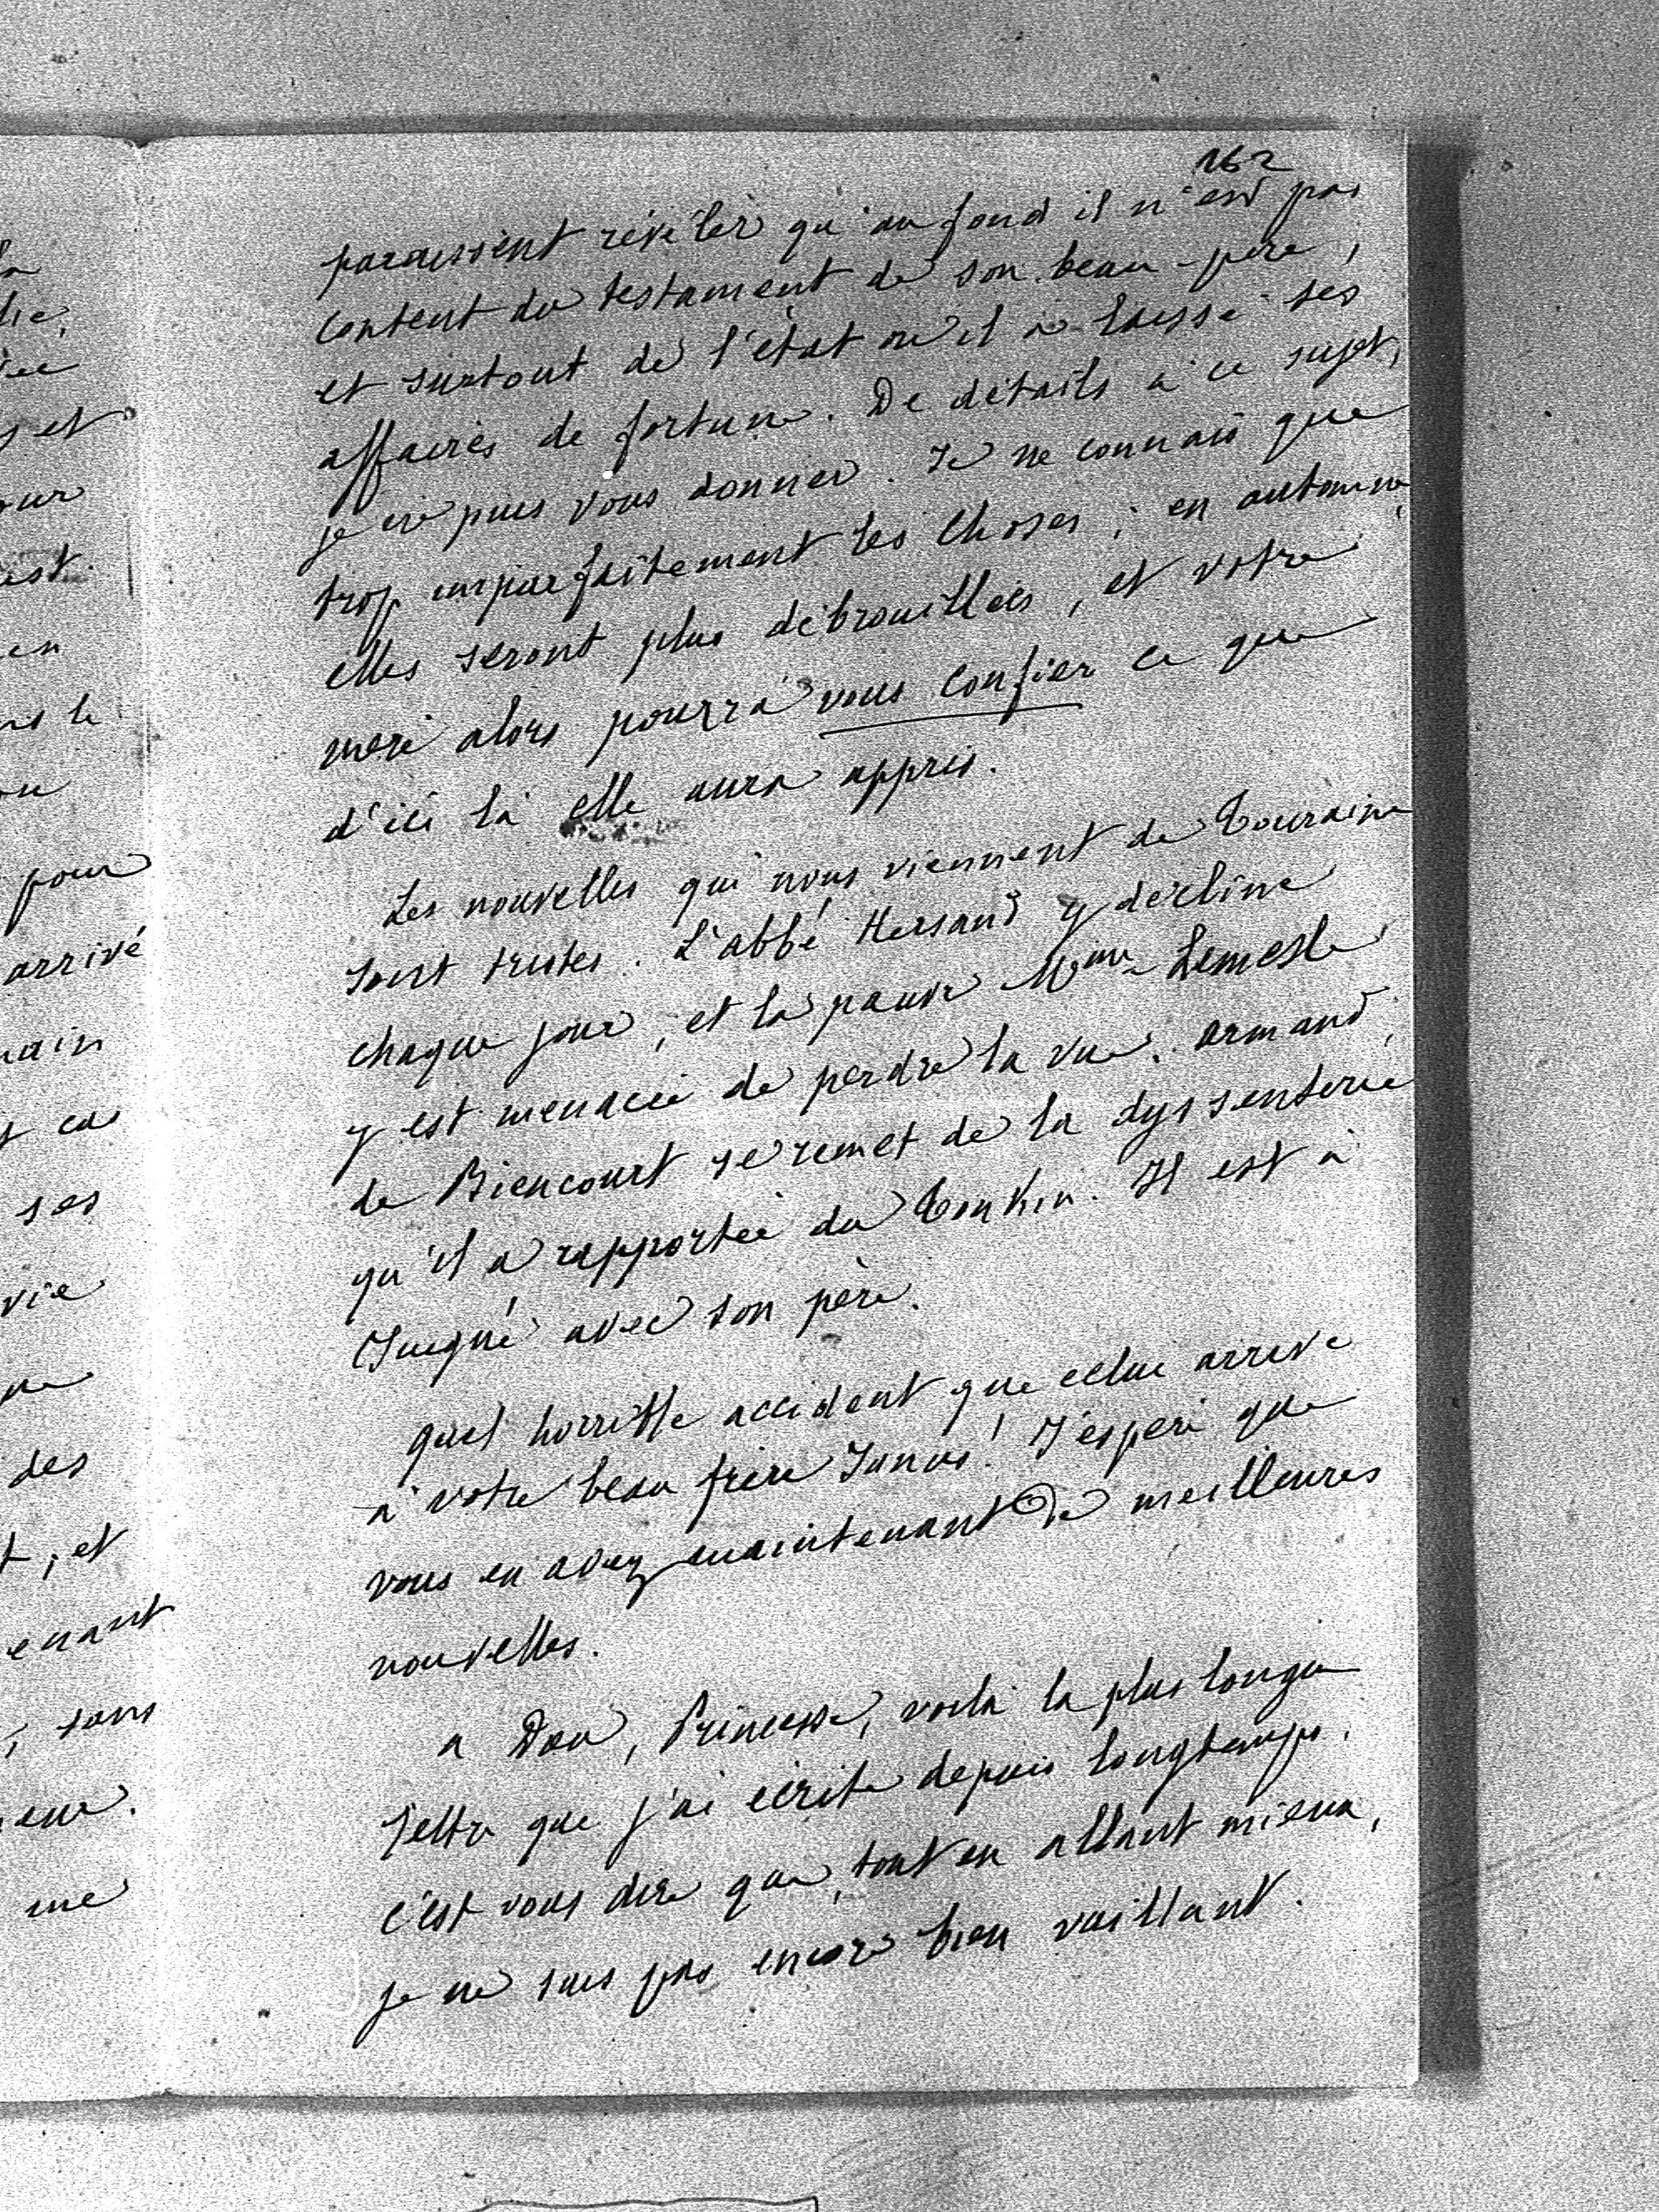 162
paraissent révéler qu'au fond il n'est pas
content du testament de son beau-père,
et surtout de l'état où il a laissé ses
affaires de fortune. De détails à ce sujet,
je ne puis vous donner. Je ne connais que
trop imparfaitement les choses ; en automne,
elles seront plus débrouillées, et votre
mère alors pourra vous confier ce que
d'ici là elle aura appris.
Les nouvelles qui nous viennent de Touraine
sont tristes. L'abbé Hersand y décline
chaque jour, et la pauvre Mme Lemesle
y est menacée de perdre la vue. Armand
de Biencourt se remet de la dyssenterie
qu'il a rapportée du Tonkin. Il est à
avec son père.
Quel horrible accident que celui arrivé
à votre beau frère Janus ! J'espère que
vous en avez maintenant de meilleures
nouvelles.
a Dieu, Princesse, voilà la plus longue
lettre que j'ai écrite depuis longtemps,
c'est vous dire que, tout en allant mieux,
je ne suis pas encore bien vaillant.